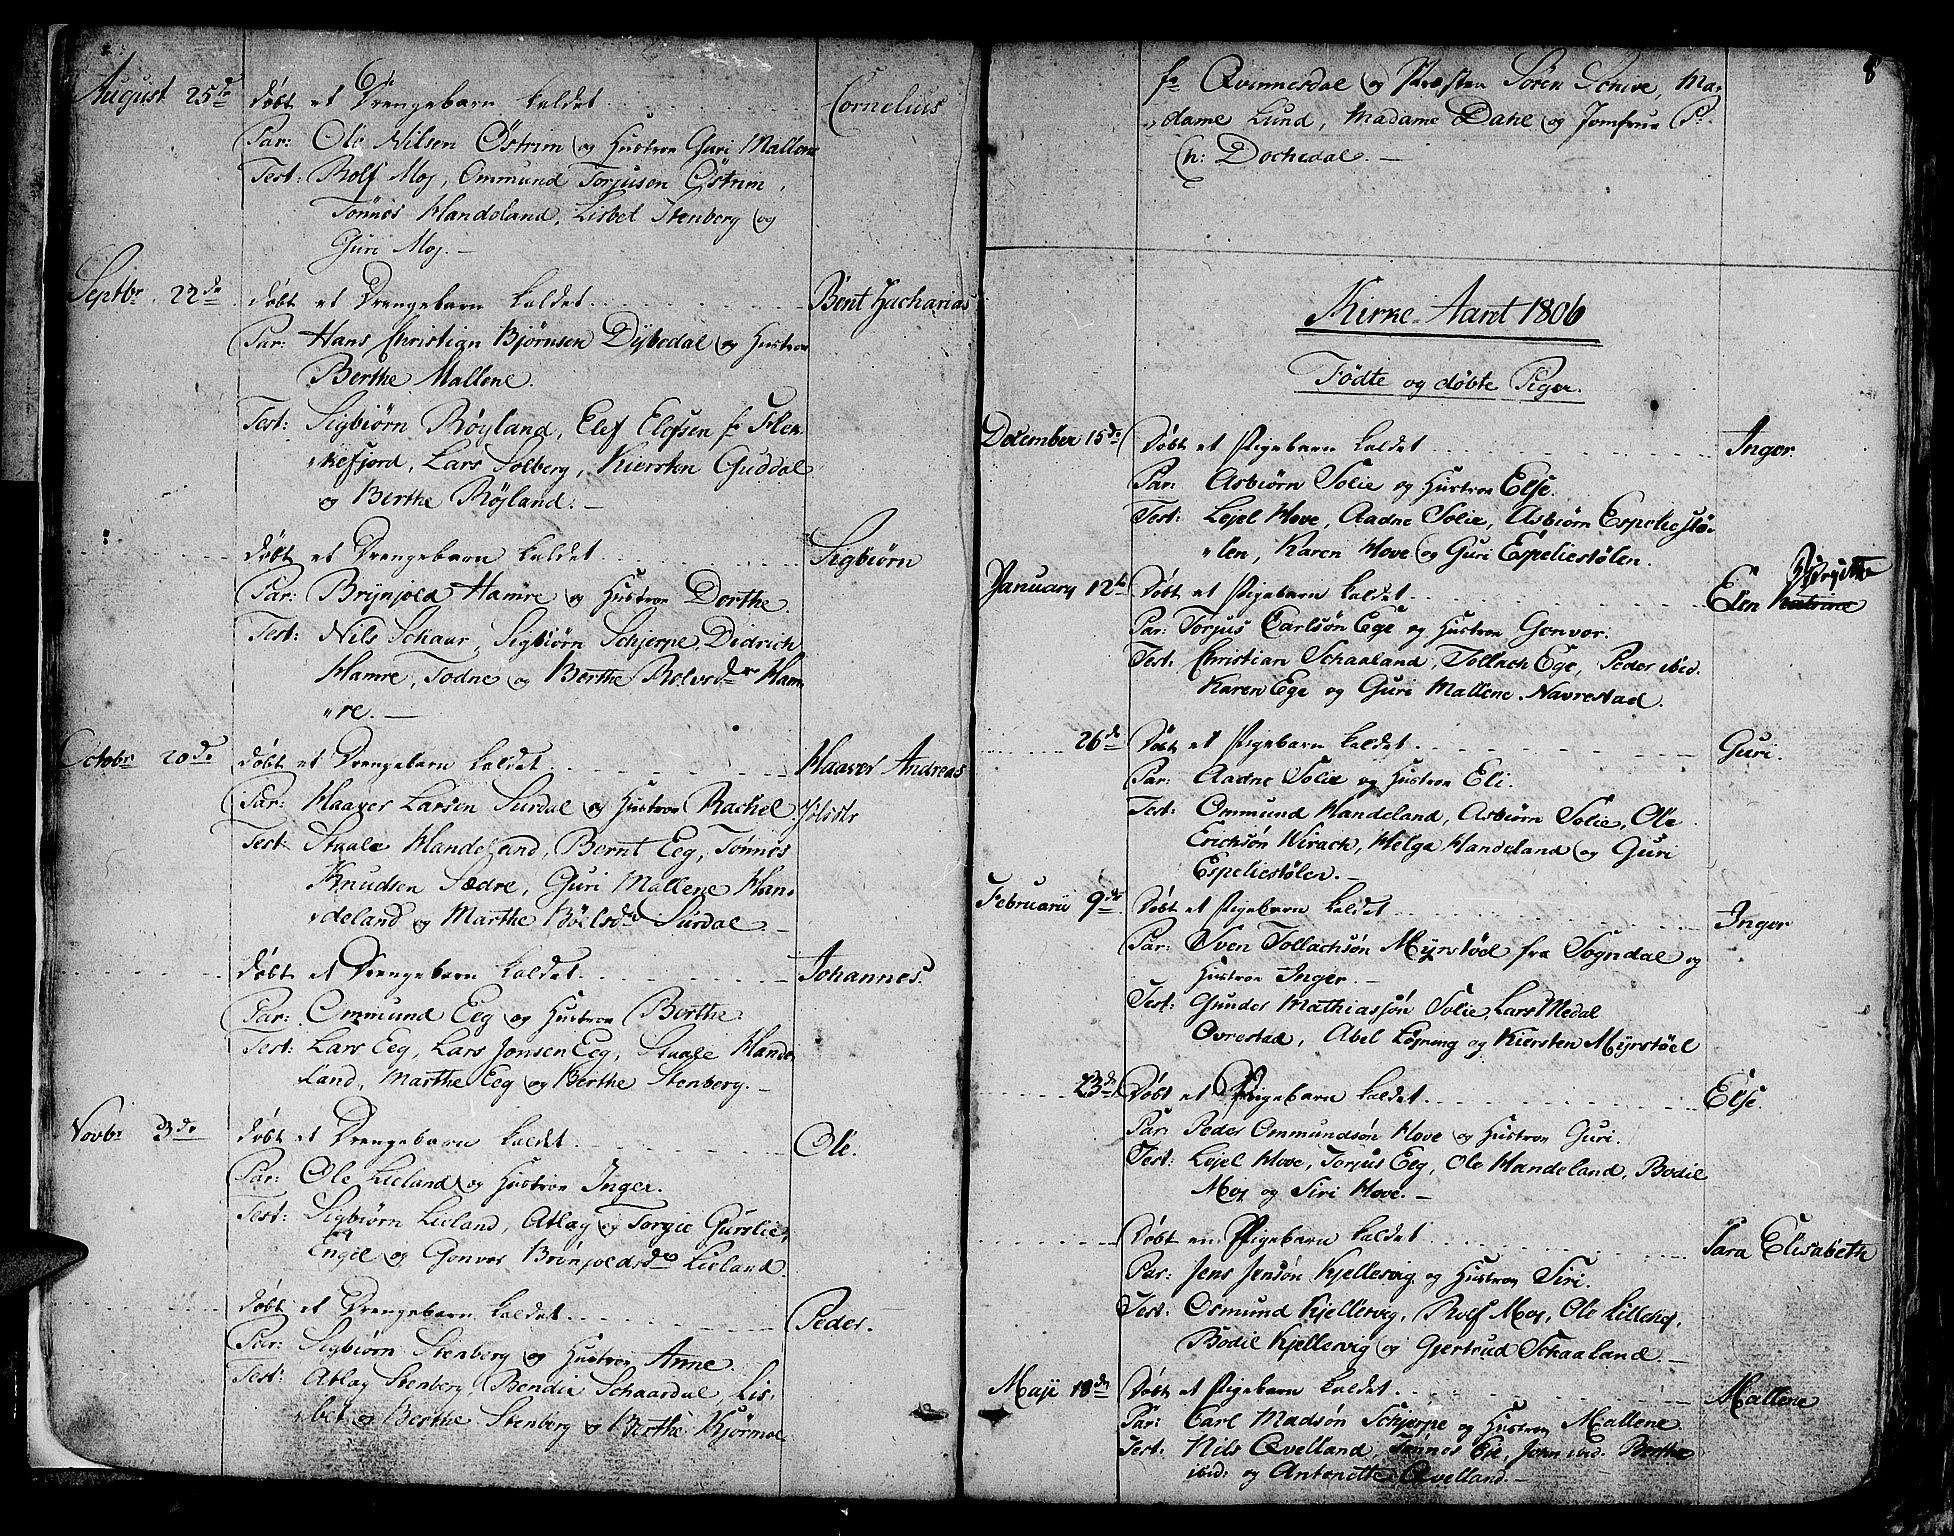 August 25de døbt et Drengebarn kaldet Cornelius
Par: Ole Nilsen Östrim og Hustroe Guri Mallene
Test: Rolf Moj, Ommund Torjusen Östrim,
Tönnes Handeland, Lisbet Stenberg og
Guri Moj. —
Septbr. 22de døbt et Drengebarn kaldet Bent Zacharias
Par: Hans Christian Bjørnsen Dybedal og Hustroe
Berthe Mallene.
Test: Sigbiørn Røyland, Elef Elofsen fr Flek„
„kefjord, Lars Solberg, Kiersten Guddal
og Berthe Röjland. —
døbt et Drengebarn kaldet Sigbiørn
Par: Brynjold Hamre og Hustroe Dorthe.
Test: Nils Schaar, Sigbiørn Schjerpe, Didrich
Hamre, Todne og Berthe Rolvsdr Ham„
„re. —
Octobr 20de døbt et Drengebarn kaldet Haaver Andreas
Par: Haaver Larsen Surdal og Hustroe Rachel
Test: Staale Handeland, Bernt Eeg, Tönnes
Knudsen Sædre, Guri Mallene Han„
„deland og Marthe Surdal. —
døbt et Drengebarn kaldet Johannes.
Par: Ommund Eeg og Hustroe Berthe.
Test: Lars Eeg, Lars Jonsen Eeg, Staale Hande
„land, Marthe Eeg og Berthe Stenberg. —
Novbr 3de døbt et Drengebarn kaldet Ole.
Par: Ole Lieland og Hustroe Inger.
Test: Sigbiørn Lieland, Atlag og Torgie Gurslie,
Engel og Gonvor Brönjoldsdr Lieland.
døbt et Drengebarn kaldet Peder.
Par: Sigbiørn Stenberg og Hustroe Anne
Test: Atlag Stenberg, Bendix Schaardal, Lis„
„bet og Berthe Stenberg og Berthe Hjörmoe
8
fr Qvinnesdal og Præsten Sören Schive, Ma„
„dame Lund, Madame Dahl og Jomfrue P:
Ch: Dochedal. —
Kirke-Aaret 1806
Födte og döbte Piger.
December 15de Døbt et Pigebarn kaldet Inger.
Par: Asbiørn Solie og Hustroe Else.
Test: Lejel Hove, Aadne Solie, Asbiørn Espeliestö„
„len, Karen Hove og Guri Espeliestølen.
January 12te Døbt et Pigebarn kaldet Elen Birgitte
Par: Torjus Carlsøn Ege og Hustroe Gonvor.
Test: Christian Schaaland, Tollach Ege, Peder ibid.
Karen Ege og Guri Mallene Navrestad.
26de Døbt et Pigebarn kaldet Guri.
Par: Aadne Solie og Hustroe Eli.
Test: Ommund Handeland, Asbiørn Solie, Ole
Erichsøn Wirach, Helga Handeland og Guri
Espeliestølen. —
Februarii 9de Døbt et Pigebarn kaldet Inger
Par: Sven Tollachsøn Myrstöel fra Sogndal og
Hustroe Inger. —
Test: Gunder Mathiassøn Solie, Lars Medal
Ovrestad, Abel Løjning og Kiersten Myrstöel
23de Døbt et Pigebarn kaldet Else.
Par: Peder Ommundsøn Hove og Hustroe Guri.
Test: Lejel Hove, Torjus Eeg, Ole Handeland, Bodil
Moj og Siri Hove. —
Døbt en Pigebarn kaldet Sara Elisabeth
Par: Jens Jensøn Kjellesvig og Hustroe Siri.
Test: Osmund Kjellesvig, Rolf Moj, Ole Lillehej,
Bodil Kjellesvig og Gjertrud Schaaland. —
Maji 18de Døbt et Pigebarn kaldet Mallene
Par: Carl Madsøn Schjerpe og Hustroe Mallene
Test: Nils Qvelland, Tønnes Eie, John ibid. Berthe
ibid: og Antonette Qvelland. —